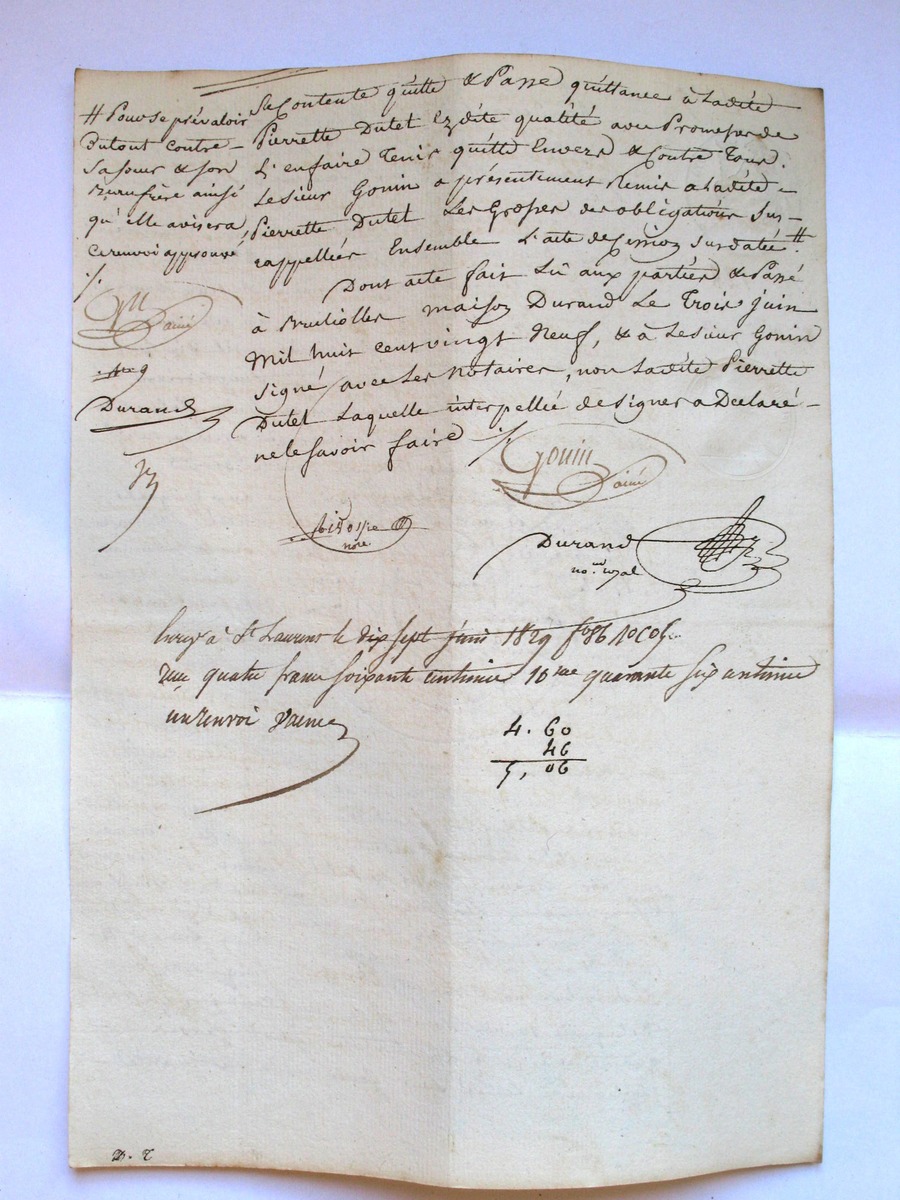 # Pour se prévaloir
Du tout contre -
Sa sœur & son
Beaufrère ainsi
qu'elle avisera,
ce renvoi approuvé
Durand
Se Contente quitte & Passe quittance à Ladite
Pierrette Dutel Ezdite qualité avec Promesse de
L'en faire Tenir quitte Envers & Contre Tous.
Le sieur Gonin a présentement Remis a Ladite -
Pierrette Dutel Les Grosses des obligations Sus-
rappellées Ensemble L'acte de Cession susdatée #
Dont acte fait Lû aux parties & Passé
à Brullolles maison Durand Le Trois juin
Mil huit cent vingt Neuf, & à Le sieur Gonin
signé avec Les Notaires, non Ladite Pierrette
Dutel Laquelle interpellée de signer a Déclaré -
ne le savoir faire
Gonin
ainé
nore.
Durand
no. royal
Enreg à St Laurent le dix sept juin 1829 fo 86
Reçu quatre francs soixante centimes 10me quarante six centimes
un renvoi
4. 60
46
5, 06
D. T